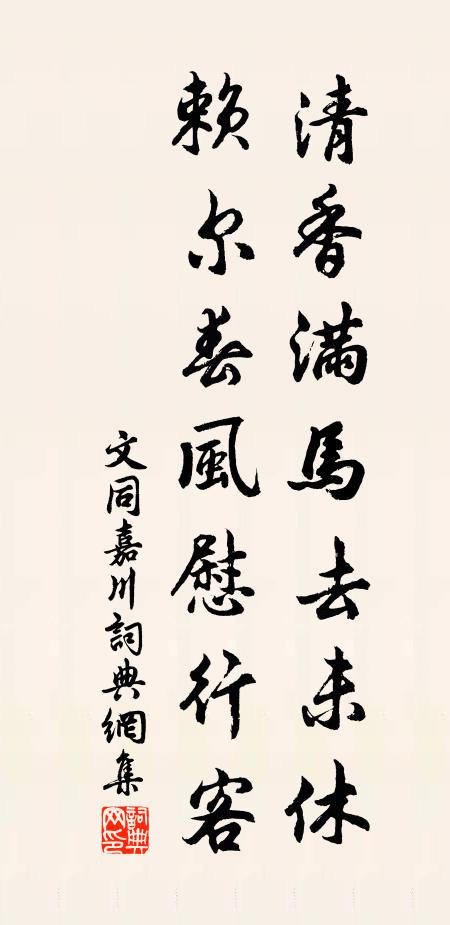 清香滿馬去未休
賴尔春風慰行客
文同嘉川詞典網集
詞典網印